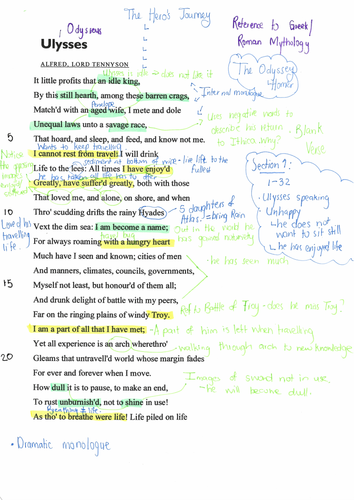 The Hero's Journey
Odysseus
Reference to Greek/
Roman Mythology
Ulysses
ALFRED, LORD TENNYSON
The Odyssey
Homer
Ulysses is idle → does not like it
It little profits that an idle king,
By this still hearth, among these barren crags,
Internal monologue
Penelope
Match'd with an aged wife, I mete and dole
Unequal laws unto a savage race,
Uses negative words to
describe his return
to Ithica. Why?
Blank
Verse
5
That hoard, and sleep, and feed, and know not me.
Wants to keep travelling
I cannot rest from travel: I will drink
sediment at bottom of wine - live life to the
fullest
Life to the lees: All times I have enjoy'd
he has taken all life has to offer
Greatly, have suffer'd greatly, both with those
That loved me, and alone, on shore, and when
Section 1:
1-32
• Ulysses speaking
• Unhappy
↳ he does not
want to sit still
↳ he has enjoyed life
10
Thro' scudding drifts the rainy Hyades
5 daughters of
Atlas - bring Rain
Loved his
travelling
life.
Vext the dim sea: I am become a name;
For always roaming with a hungry heart
Much have I seen and known; cities of men
he has seen much
And manners, climates, councils, governments,
15
Myself not least, but honour'd of them all;
And drunk delight of battle with my peers,
Far on the ringing plains of windy Troy.
Ref to Battle of Troy - does he miss Troy?
I am a part of all that I have met;
- A part of him is left when travelling
Yet all experience is an arch wherethro'
walking through arch to new knowledge
20
Gleams that untravell'd world whose margin fades
For ever and forever when I move.
How dull it is to pause, to make an end,
Images of sword not in use
- he will become dull
To rust unburnish'd, not to shine in use!
Breathing ≠ life
As tho' to breathe were life! Life piled on life
• Dramatic monologue